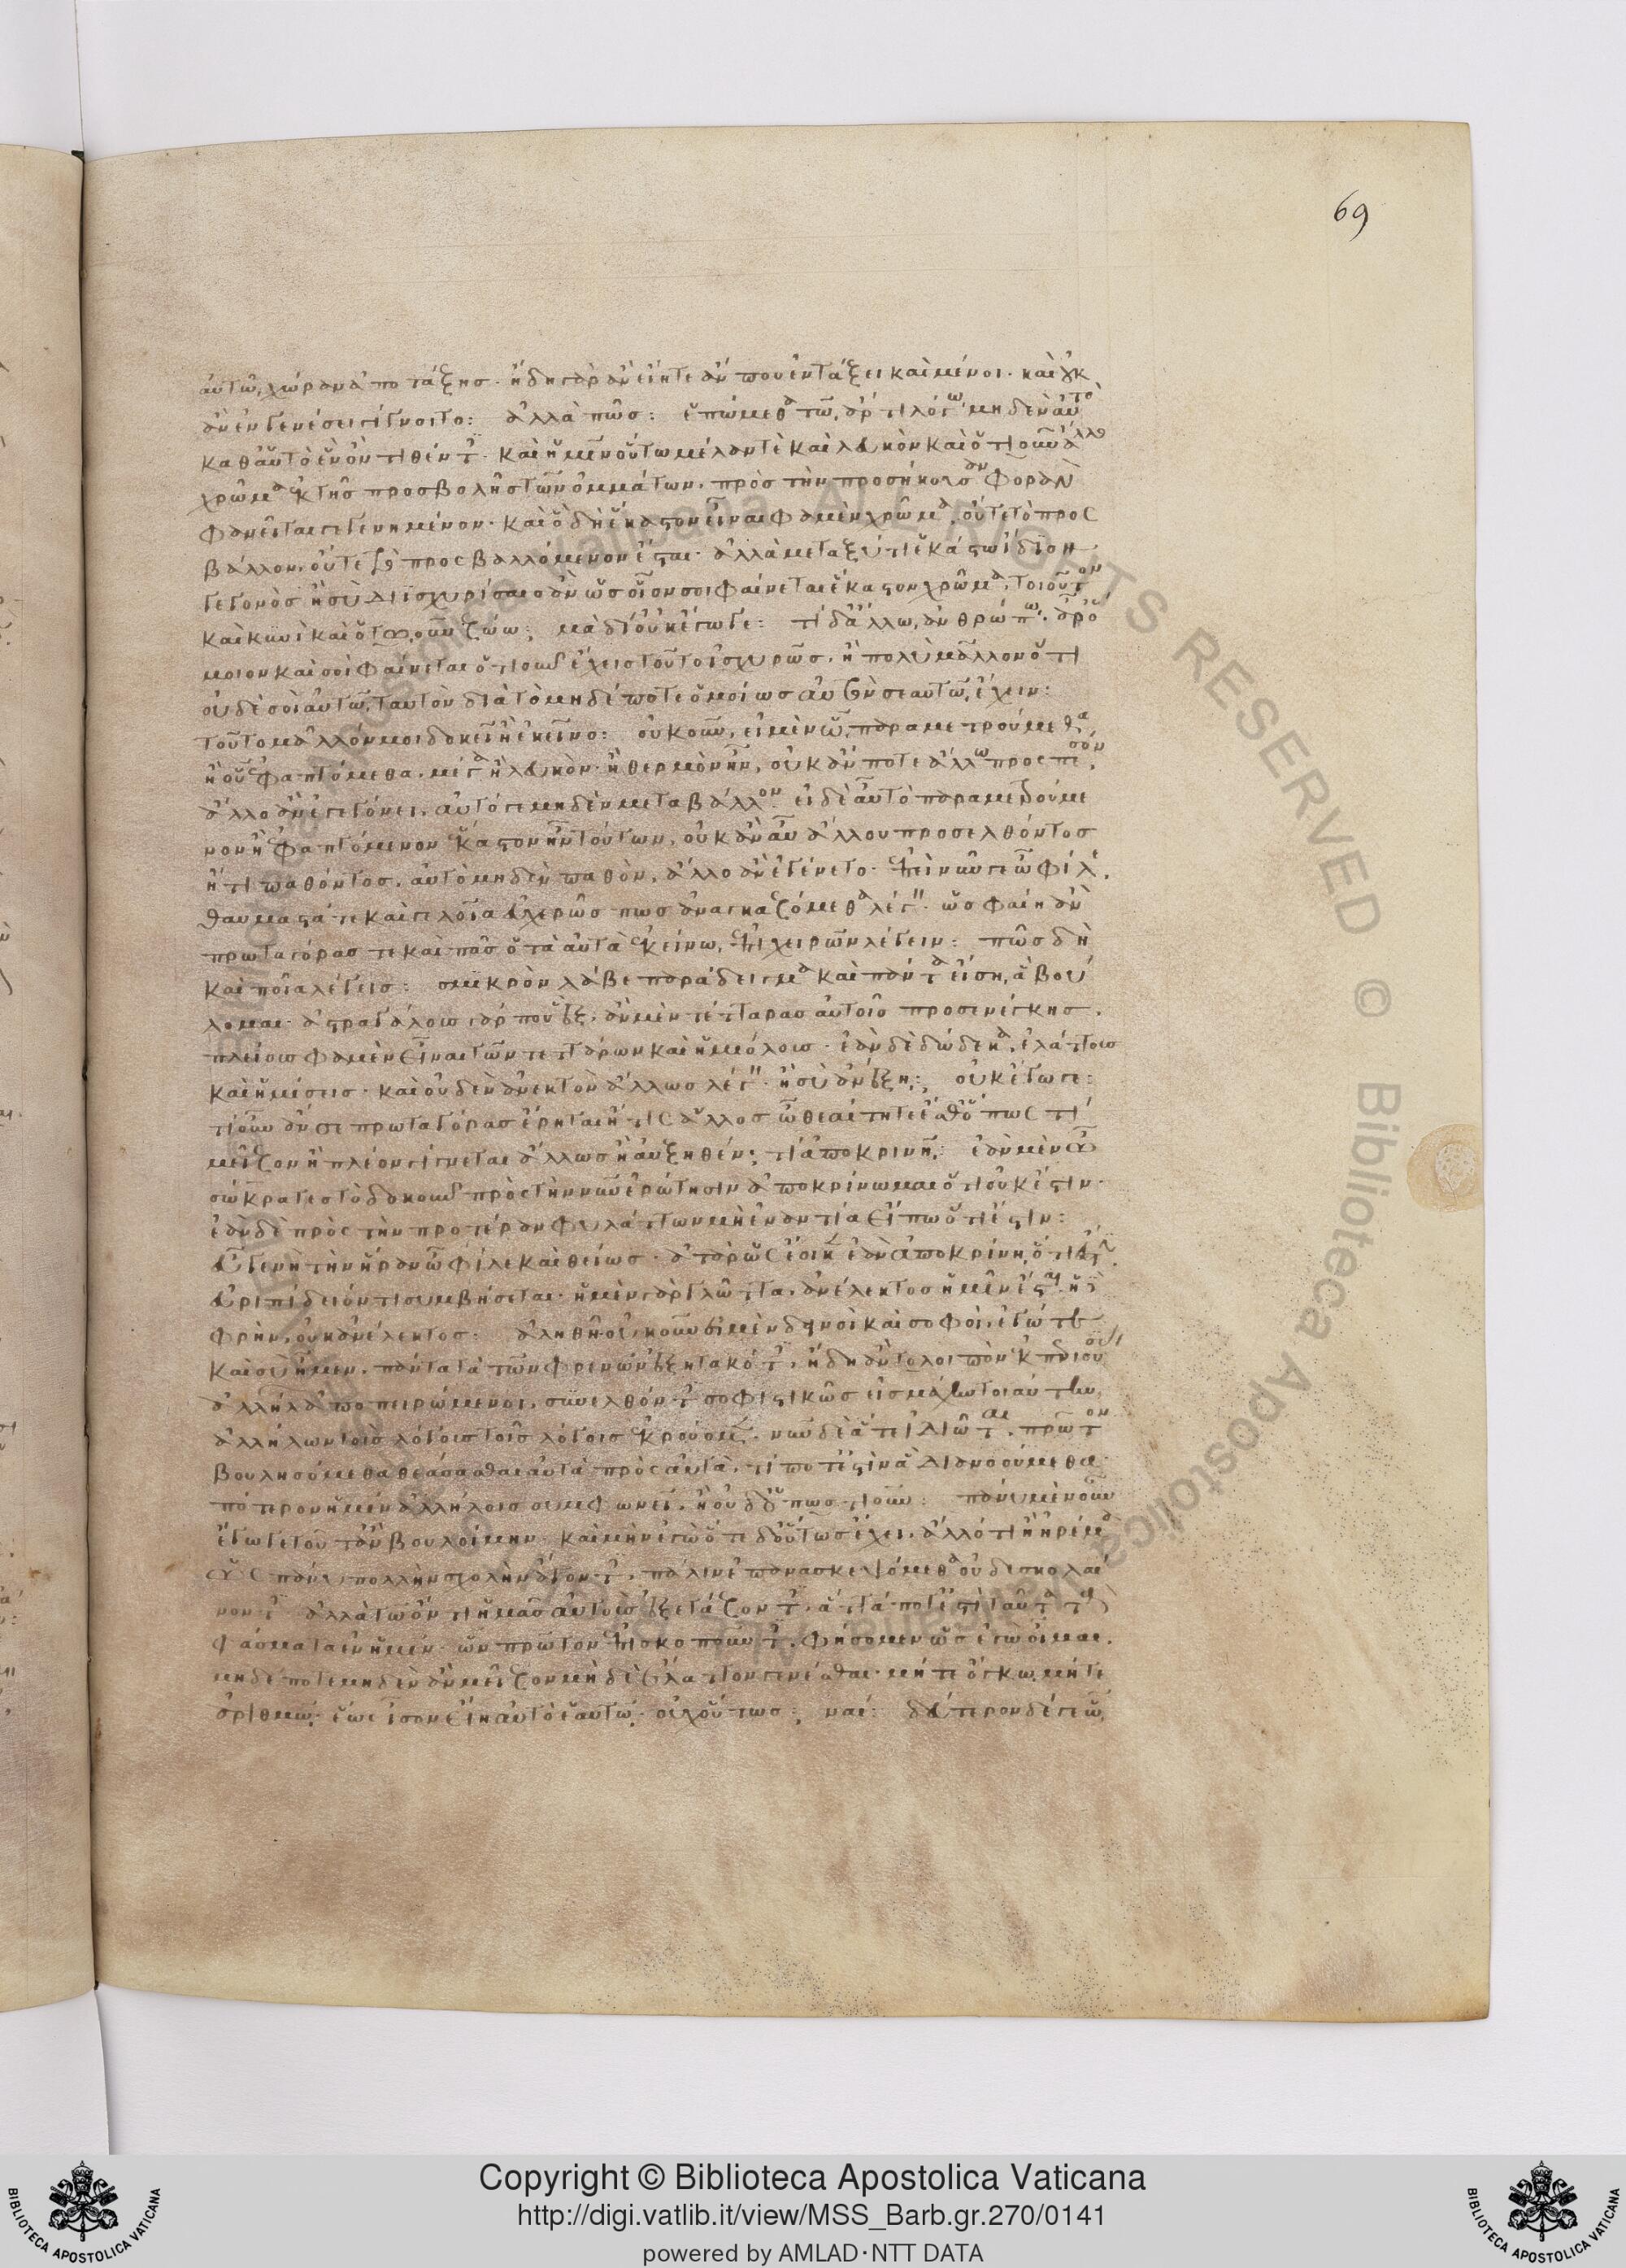 69
αὐτῶ, χώραν ἀποτάξησ. ἤδη γὰρ ἂν εἴητε ἄν που ἐν τάξει καὶ μένοι. καὶ οὐκ
ἂν ἐν γενέσει γίγνοιτο: ἀλλὰ πῶσ: ἑπώμεθα τῶ, ἄρτι λόγω, μηδὲν αὐτὸ
καθ αὑτὸ ἓν ὂν τιθέντες. καὶ ἡμῖν οὕτω μέλαν τὲ καὶ λευκὸν καὶ ὁτιοῦν ἄλλο
χρῶμα ἐκ τῆσ προσβολῆσ τῶν ὀμμάτων. πρὸσ τὴν προσήκουσαν φορὰν
φανεῖται γεγενημένον. καὶ ὃ δὴ ἕκαστον εἶναι φαμὲν χρῶμα, οὔτε τὸ προσ
βάλλον. οὔτε τὸ προσβαλλόμενον ἔσται. ἀλλὰ μεταξύ τι ἑκάστω ἴδϊον
γεγονὸσ ἢ σὺ διϊσχυρίσαιο ἂν ὡσ οἷον σοι φαίνεται ἕκαστον χρῶμα, τοιοῦτον
καὶ κυνὶ καὶ ὁτωοῦν ζώω; μὰ δί οὐκ ἔγωγε: τί δὲ ἄλλω, ἀνθρώπω, ἆρ ὅ
μοιον καὶ σοὶ φαίνεται ὁτιοῦν ἔχεισ τοῦτο ἰσχυρῶσ. ἢ πολὺ μᾶλλον ὅτι
οὐδὲ σοὶ αὐτῶ, ταυτὸν διὰ τὸ μηδέποτε ὁμοίωσ αὐτὸν σεαυτῶ, ἔχειν:
τοῦτο μᾶλλόν μοι δοκεῖ ἢ ἐκεῖνο: οὐκοῦν, εἰ μὲν ὧ, παραμετρούμεθα,
ἢ οὗ ἐφαπτόμεθα. μέγα ἢ λευκὸν. ἢ θερμὸν ἦν, οὐκ ἄν ποτε ἄλλω προσπεσόν,
ἄλλο ἂν ἐγεγόνει. αὐτό γε μηδὲν μεταβάλλον. εἰ δὲ αὖ τὸ παραμετρούμε
νον ἢ ἐφαπτόμενον ἕκαστον ἦν τούτων, οὐκ ἂν αὖ ἄλλου προσελθόντοσ
ἤ τι παθόντοσ. αὐτὸ μηδὲν παθὸν. ἄλλο ἂν ἐγένετο. ἐπεὶ νῦν γε ὦ φίλε.
θαυμαστά τε καὶ γελοῖα εὐχερῶσ πωσ ἀναγκαζόμεθα λέγειν. ὡσ φαίη ἂν
πρωταγόρασ τε καὶ πᾶσ ὁ τὰ αὐτὰ ἐκείνω, ἐπιχειρῶν λέγειν: πῶσ δὴ
καὶ ποῖα λέγεισ: σμικρὸν λάβε παράδειγμα καὶ πάντα εἴση, ἃ βού
λομαι. ἀστραγάλουσ γάρ που ἓξ. ἂν μὲν τέτταρασ αὐτοῖσ προσενέγκησ.
πλείουσ φαμὲν εἶναι τῶν τεττάρων καὶ ἡμιόλουσ. ἐὰν δὲ δώδεκα. ἐλάττουσ
καὶ ἡμίσεισ. καὶ οὐδὲν ἀνεκτὸν ἄλλωσ λέγειν. ἢ σὺ ἀνέξη; οὐκ ἔγωγε:
τί οὖν ἄν σε πρωταγόρασ ἔρηται ἤ τισ ἄλλοσ ὦ θεαίτητε ἔσθ ὅπωσ τί
μεῖζον ἢ πλέον γίγνεται ἄλλωσ ἢ αὐξηθέν; τί ἀποκρινῆ; ἐὰν μὲν ὦ
σώκρατεσ τὸ δοκοῦν πρὸσ τὴν νῦν ἐρώτησιν ἀποκρίνωμαι ὅτι οὐκ ἔστιν.
ἐὰν δὲ πρὸσ τὴν προτέραν φυλάττων μὴ ἐναντία εἴπω ὅτι ἔστιν:
εὖ γε νὴ τὴν ἥραν ὦ φίλε καὶ θείωσ. ἀτὰρ ὡσ ἔοικεν ἐὰν ἀποκρίνη, ὅτι ἔστιν.
εὐριπίδειόν τι συμβήσεται. ἡ μὲν γὰρ γλῶττα. ἀνέλεγκτοσ ἡμῖν ἔσται. ἡ δὲ
φρὴν. οὐκ ἀνέλεγκτοσ: ἀληθῆ: οὐκοῦν εἰ μὲν δεινοὶ καὶ σοφοὶ. ἐγώ τε
καὶ σὺ ἦμεν. πάντα τὰ τῶν φρενῶν ἐξητακότες. ἤδη ἂν τὸ λοιπὸν ἐκ περιουσίας
ἀλλήλων ἀποπειρώμενοι. συνελθόντες σοφιστικῶσ εἰσ μάχην τοιαύτην,
ἀλλήλων τοὺσ λόγουσ τοῖσ λόγοισ ἐκρούομεν. νῦν δὲ ἅτε ἰδιῶται. πρῶτον
βουλησόμεθα θεάσασθαι αὐτὰ πρὸσ αὑτὰ. τί ποτ ἐστὶν ἃ διανοούμεθα.
πότερον ἡμῖν ἀλλήλοισ συμφωνεῖ. ἢ οὐδ ὁπωστιοῦν: πάνυ μὲν οὖν
ἔγωγε τοῦτ ἂν βουλοίμην. καὶ μὴν ἐγὼ ὅτε δ οὕτωσ ἔχει. ἄλλό τι ἢ ἠρέμα
ὡσ πάνυ πολλὴν σχολὴν ἄγοντες. πάλιν ἐπανασκεψόμεθα οὐ δυσκολαί
νοντες ἀλλὰ τῶ ὄντι ἡμᾶσ αὐτοὺσ ἐξετάζοντες. ἅττά ποτ ἐστὶ ταῦτα τὰ
φάσματα ἐν ἡμῖν. ὧν πρῶτον ἐπισκοποῦντες. φήσομεν ὡσ ἐγὼ οἶμαι.
μηδέποτε μηδὲν ἂν μεῖζον μηδὲ ἔλαττον γενέσθαι. μήτε ὄγκω, μήτε
ἀριθμῶ, ἕωσ ἴσον εἴη αὐτὸ ἑαυτῶ. οὐχ οὕτωσ; ναί: δεύτερον δέ γε ὧ,
Copyright © Biblioteca Apostolica Vaticana
http://digi.vatlib.it/view/MSS_Barb.gr.270/0141
powered by AMLAD·NTT DATA